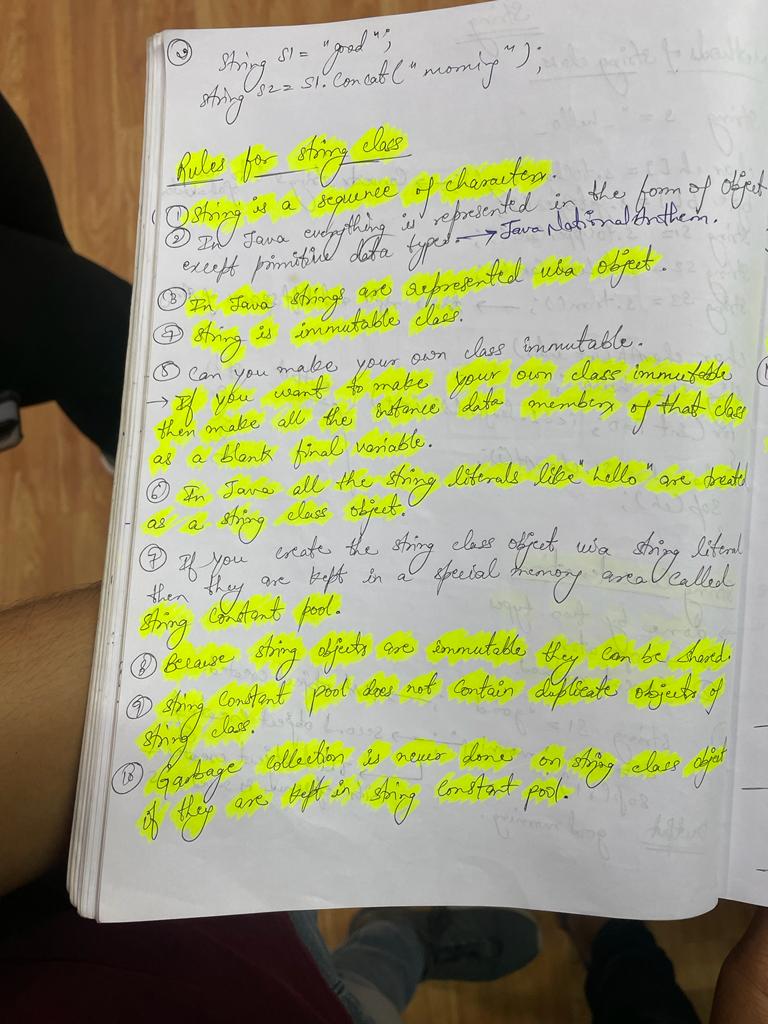 ③ String S1 = "good";
string S2 = S1.Concat("morning");
Rules for string class
① string is a sequence of characters.
② In Java everything is represented in the form of Object
except primitive data types. → Java National Anthem.
③ In Java strings are represented via object.
④ string is immutable class.
⑤ Can you make your own class immutable.
→ If you want to make your own class immutable
then make all the instance data members of that class
as a blank final variable.
⑥ In Java all the string literals like "hello" are treated
as a string class object.
⑦ If you create the string class object via string literal
then they are kept in a special memory area called
string constant pool.
⑧ Because string objects are immutable they can be shared.
⑨ string constant pool does not contain duplicate objects of
string class.
⑩ Garbage collection is never done on string class object
if they are kept in string constant pool.